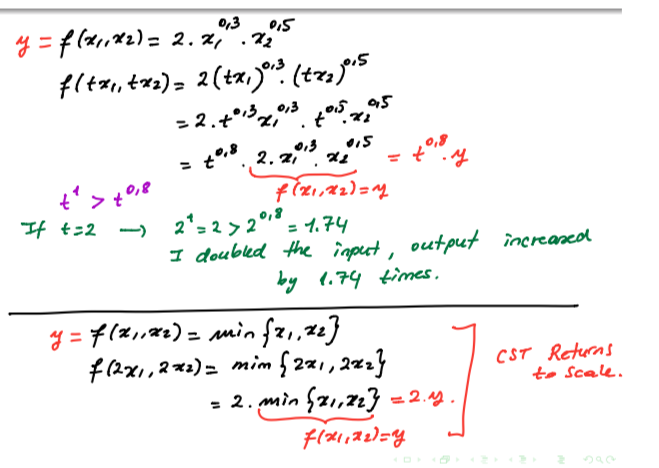 y = f(x₁,x₂) = 2. x₁^0,3 . x₂^0,5
f(tx₁, tx₂) = 2(tx₁)^0,3 . (tx₂)^0,5
= 2. t^0,3 x₁^0,3 . t^0,5 . x₂^0,5
= t^0,8 . 2. x₁^0,3 . x₂^0,5 = t^0,8 . y
f(x₁,x₂) = y
t^1 > t^0,8
If t=2 → 2^1 = 2 > 2^0,8 = 1.74
I doubled the input, output increased
by 1.74 times.
y = f(x₁,x₂) = min {x₁,x₂}
f(2x₁, 2x₂) = min {2x₁, 2x₂}
= 2. min {x₁,x₂} = 2.y.
f(x₁,x₂) = y
CST Returns
to scale.